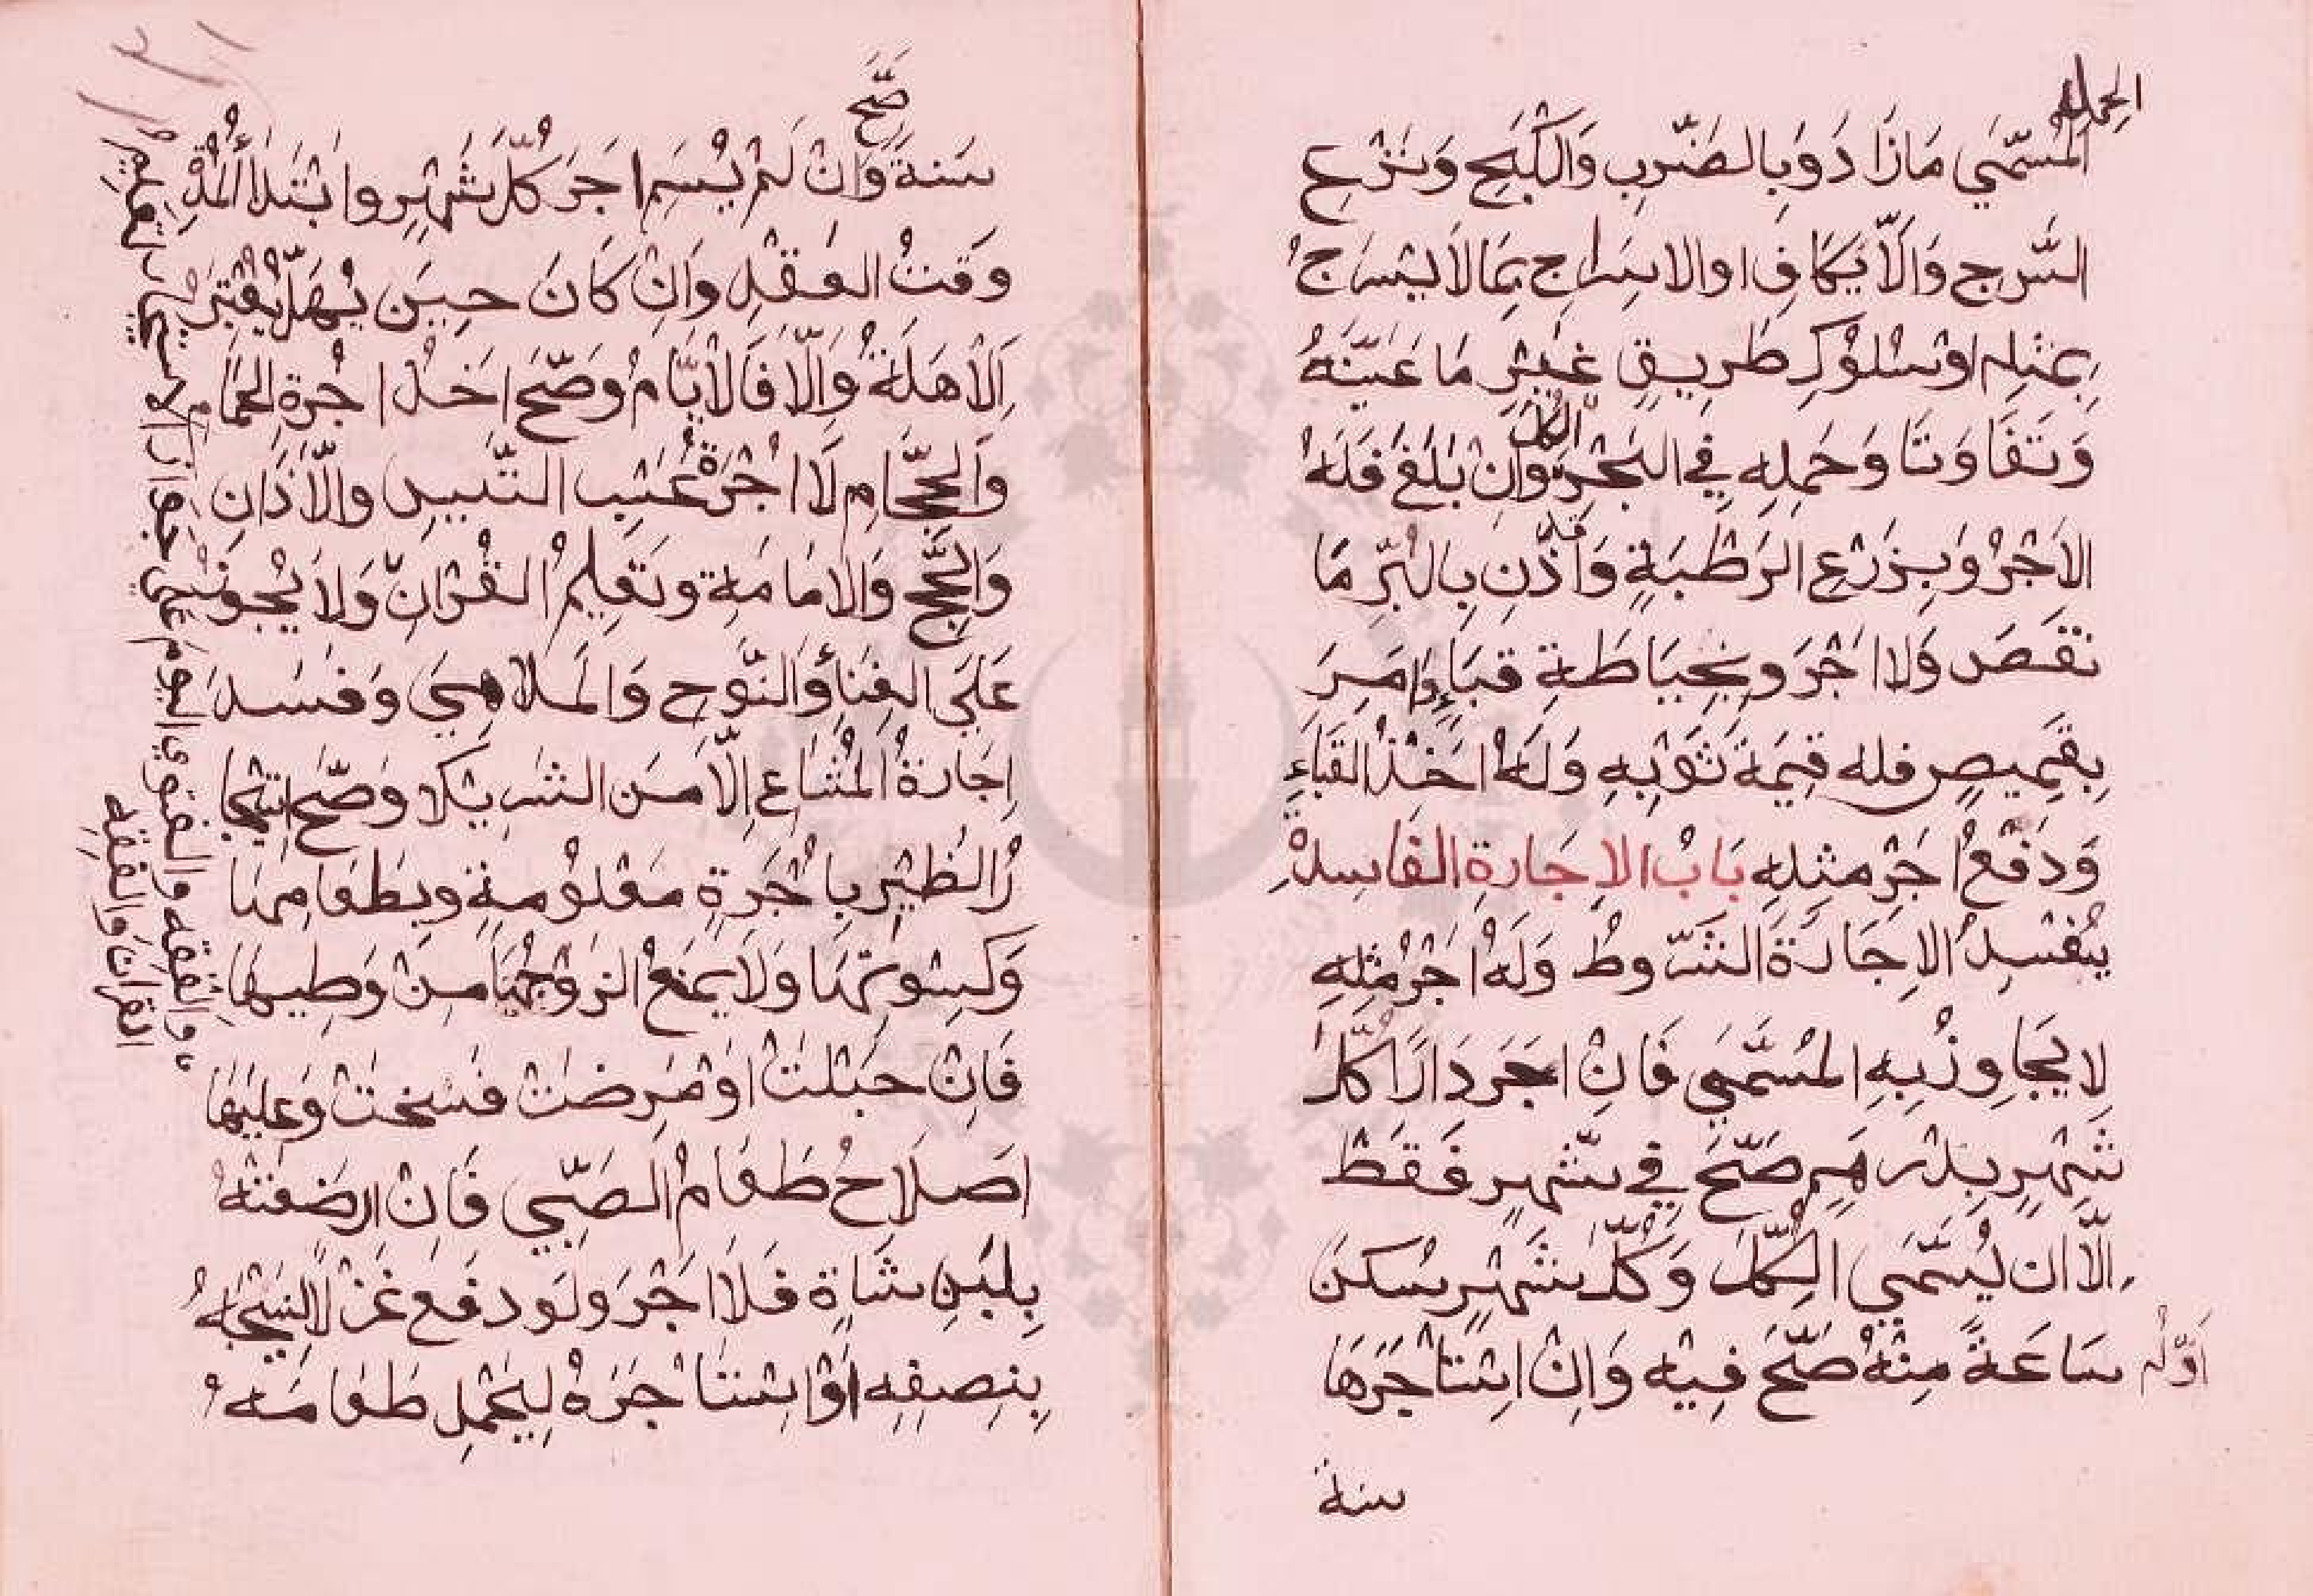 الحمل
المُسَمَّي مَازَادَ وَبِالضَّرْبِ وَالْكَبْحِ وَنَزْعِ
السَّرْجِ وَالْاَيكَافِ اوالاسْرَاجِ بِمَالَايُسْرَجُ
بِمِثلِهِ اَوْسُلُوْكِ طَرِيقٍ غَيْرِ مَا عَيَّنَهُ
وَتَفَاوَتَا وَحَمْلِهِ فِي البَحْرِ الكل وَانْ بَلَغَ فَلَهُ
الاَجْرُ وَبِزَرْعِ الرَطْبَةٍ وَاُذِّنِ قد بِالْبُرِّ مَا
نَقَصَ وَلَا اَجْرَ وَبِخِيَاطَةِ قبَاءٍ وَامَرَ
بِقَمِيصٍ فله قِيمَةَ ثَوْبِهِ وَلَهُ اَخْذُ القَبَاءِ
وَدَفْعُ اَجْرِ مثِلِهِ بَابُ الاِجَارةِ الفَاسِدةِ
يُفْسِدُ الاِجَارَةَ الشَّروطُ وَلَهُ اَجْرُ مِثْلِهِ
لاَ يُجَاوِزُبِهِ المُسَمَّي فَانِ اجَرَ دَارًا كُلَّ
شَهْرٍ بِدْرهَمٍ صَحَّ فِي شَهْرٍ فَقَطْ
اِلَّا ان يُسَمَّيَ الكُلَّ وَكُلُّ شَهْرٍ سَكنَ
اَوّلُه سَاعَةً مِنْهُ صَحَّ فِيْهِ وَانِْ اسْتَاْجَرَهَا
سنة
صَحَّ
سَنةً وَانْ لَمْ يُسَمِّ اجَرَ كُلِّ شَهْرٍ وابْتِدَاءُ المُدَّةِ
وَقتُ العَقْدِ وَانِْ كَانَ حِينَ يُهَلُّ يُعْتَبَرُ
اَلْاَهِلَةُ وَالَّا فَالْاَيَّامُ وَصَحَّ اَخْذُ اُجْرَةِ الحَمَّام
وَالحَجَّامِ لَا اُجْرَةُ عَسْبِ التَّيسِ والْاَذَانِ
وَالْحَجِّ وَالْامَامَةِ وتَعَلِيمُ القُرْانِ وَلاَ يُجوزُ
عَلَي الغِنَاءِ وَالنَّوْحِ وَالمَلاهِيَ وَفسَدَ
اِجَارَةُ المُشَاعِ اِلَّا مِنَ الشرِيكِ وَصَحَّ اسْتِيجَا
رُ الظِئْرِ بِاُجْرَةٍ مَعْلُومةٍ وبِطَعَامِهَا
وَكِسْوتِهَا وَلَا يمَنَعُ الزَوْجُهَا مِنْ وَطِيهَا
فَانِْ حَبَلتْ اوْ مَرِضَتْ فسَخَتْ وَعَليْهَا
اصْلَاحُ طَعَامُ الصَّبِي فَانِْ ارضَعَتْهُ
بِلَبَنِ شَاةٍ فَلَا اَجْرَ وَلَو دفَع غَزْلًا لِيَنْسِجَهُ
بِنِصِفِهِ اَوْ استَاْجَرَهُ لِيَحْمِلَ طَعَامَهُ
والفتوي اليوم علي جواز الاستيجار لتعليم
القران والفقه